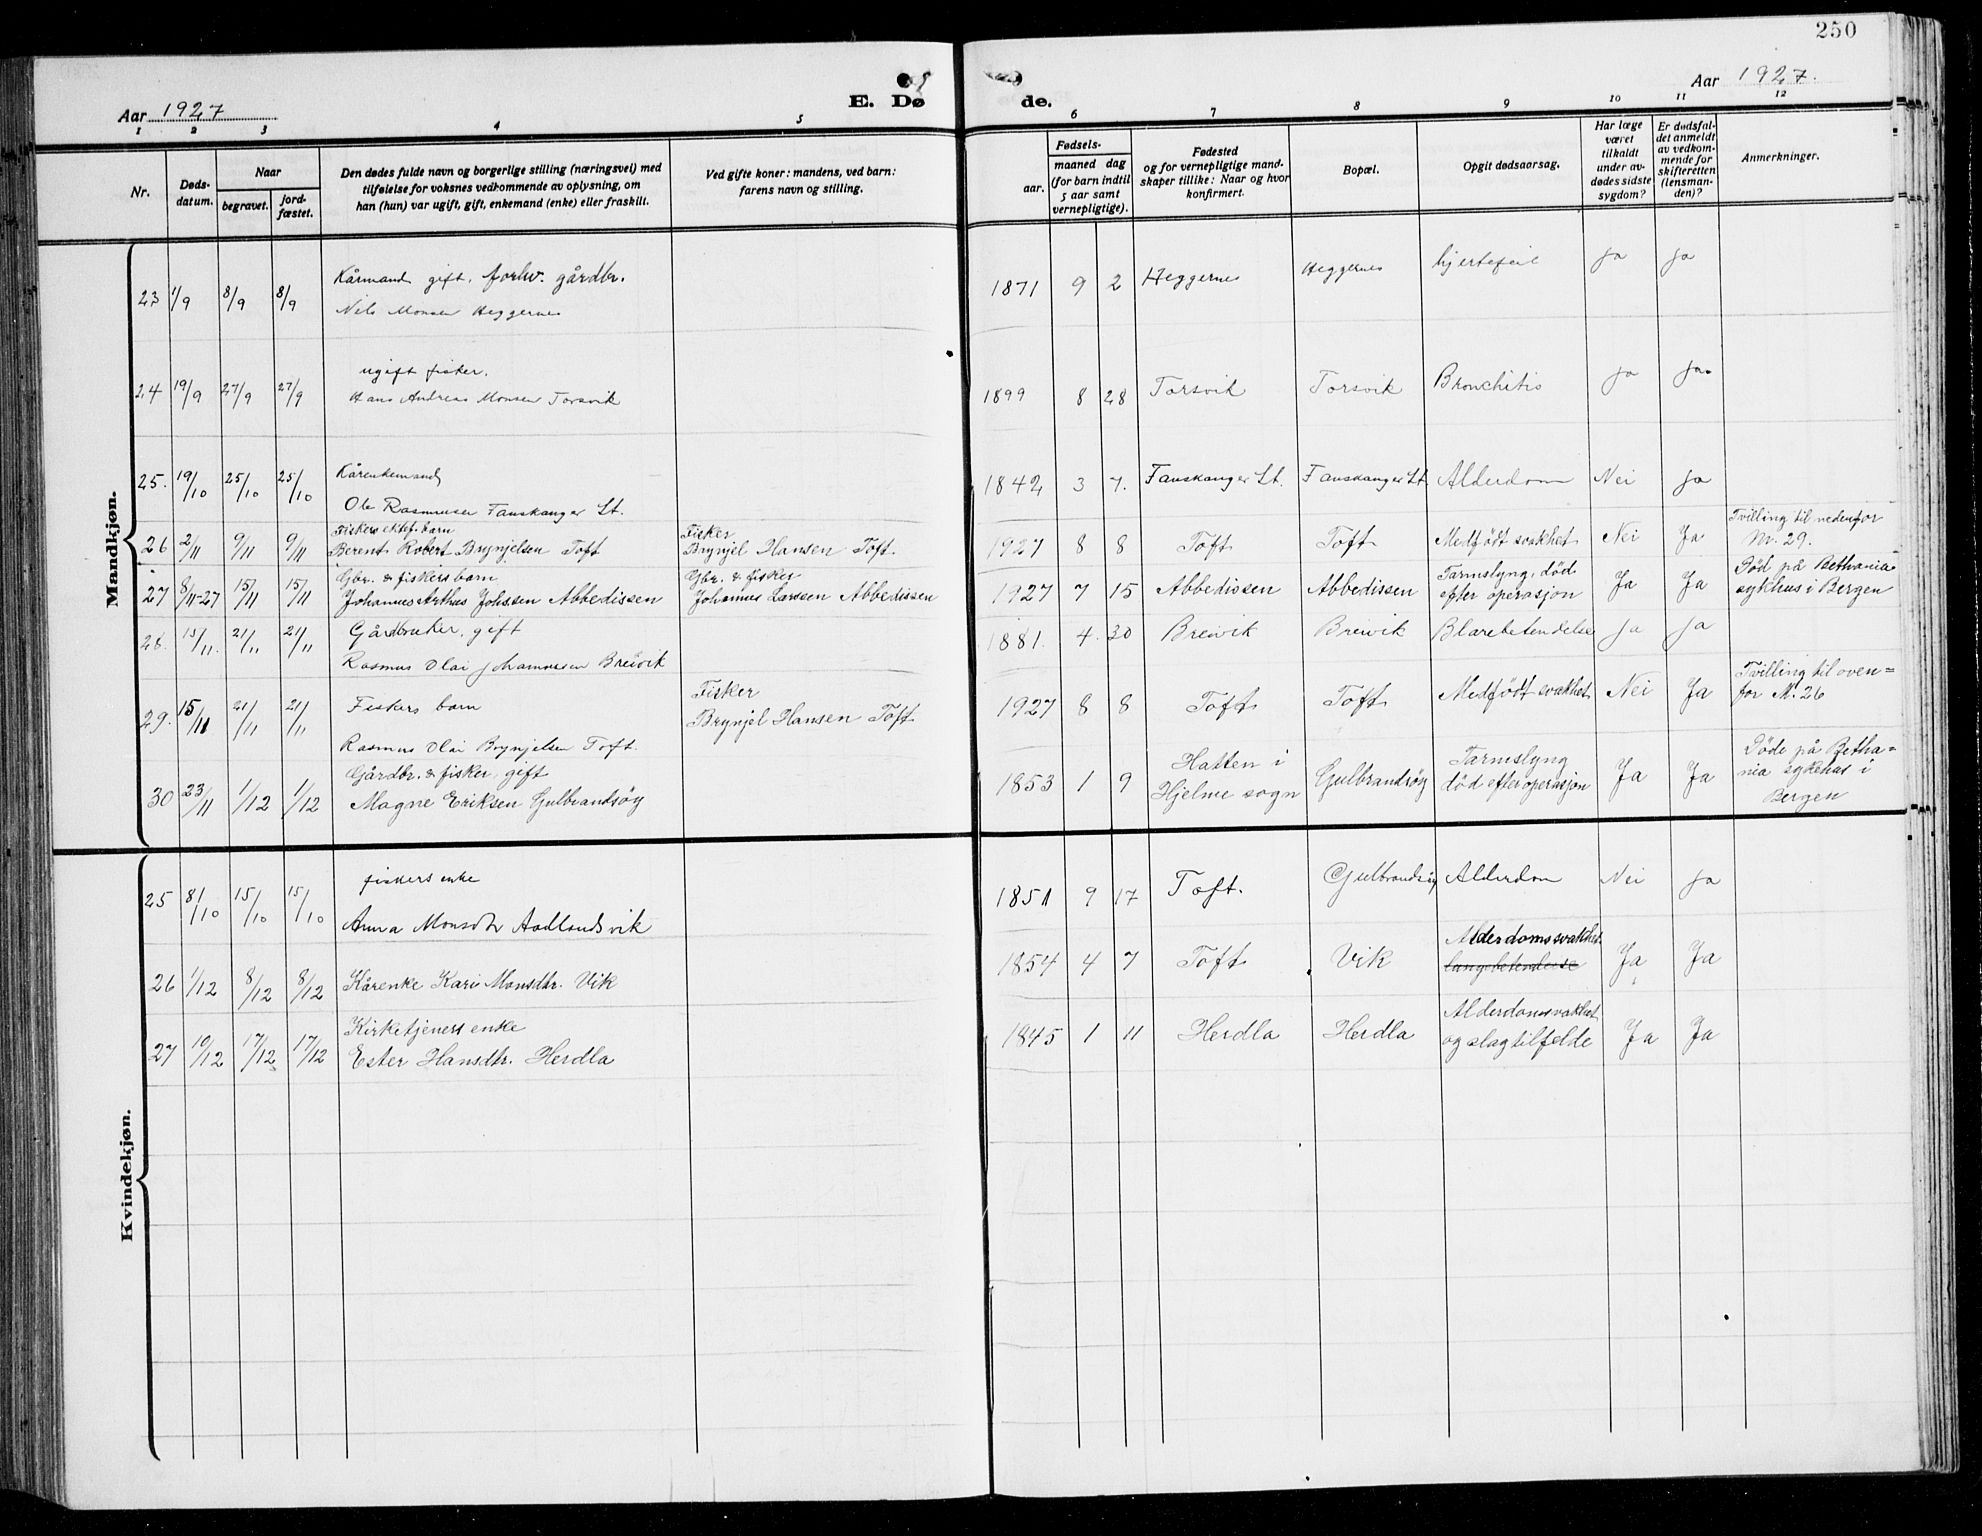 250
Aar 1927
E. Dø
de.
Aar 1927.
1 2 3 4 5 6 7 8 9 10 11 12
Nr.
Døds-
datum.
Naar
begravet.
jord-
fæstet.
Den dødes fulde navn og borgerlige stilling (næringsvei) med
tilføielse for voksnes vedkommende av oplysning, om
han (hun) var ugift, gift, enkemand (enke) eller fraskilt.
Ved gifte koner: mandens, ved barn:
farens navn og stilling.
Fødsels-
aar.
maaned dag
(for barn indtil
5 aar samt
vernepligtige).
Fødested
og for vernepligtige mand-
skaper tillike: Naar og hvor
konfirmert.
Bopæl.
Opgit dødsaarsag.
Har læge
været
tilkaldt
under av-
dødes sidste
sygdom?
Er dødsfal-
det anmeldt
av vedkom-
mende for
skifteretten
(lensman-
den)?
Anmerkninger.
Mandkjøn.
23 1/9 8/9 8/9
Kårmand gift, forhv. gårdbr.
Nils Monsen Heggernes
1871 9 2 Heggernes Heggernes hjertefeil Ja Ja
24 19/9 27/9 27/9
ugift fisker.
Hans Andreas Monsen Torsvik
1899 8 28 Torsvik Torsvik Bronchitis Ja Ja
25. 19/10 25/10 25/10
Kårenkemand
Ole Rasmusen Fauskanger Lt.
1842 3 7. Fauskanger Lt. Fauskanger Lt. Alderdom Nei Ja
26 2/11 9/11 9/11
Fiskers ektef. barn
Berent Robert Brynjelsen Toft
Fisker
Brynjel Hansen Toft.
1927 8 8 Toft Toft Medfödt svakhet Nei Ja
Tvilling til nedenfor
Nr. 29.
27 8/11-27 15/11 15/11
Gbr. & fiskers barn
Johannes Arthus Johssen Abbedissen
Gbr. & fisker
Johannes Larssen Abbedissen
1927 7 15 Abbedissen Abbedissen
Tarmslyng, död
efter operasjon
Ja Ja
Död på Bethania
sykhus i Bergen
28. 15/11. 21/11 21/11
Gårdbruker, gift
Rasmus Olai Johannesen Breivik
1881. 4. 30 Breivik Breivik Blærebetendelse Ja Ja
29. 15/11 21/11 21/11
Fiskers barn
Rasmus Olai Brynjelsen Toft.
Fisker
Brynjel Hansen Toft
1927 8 8 Toft Toft Medfödt svakhet Nei Ja
Tvilling til oven=
for N. 26
30 23/11 1/12 1/12
Gårdbr. & fisker, gift
Magne Eriksen Gulbrandsöy
1853 1 9
Hatten i
Hjelme sogn
Gulbrandsöy
Tarmslyng
död efter operasjon
Ja Ja
Döde på Betha=
nia sykehus i
Bergen
Kvindekjøn.
25 8/10 15/10 15/10
fiskers enke
Anna Monsdtr Aadlandsvik
1851 9 17 Toft. Gulbrandsöy Alderdom Nei Ja
26 1/12 8/12 8/12
Kårenke Kari Monsdtr. Vik
1854 4 7 Toft Vik
Alderdomssvakhet
lungebetendelse
Ja Ja
27 10/12 17/12 17/12
Kirketjeners enke
Ester Hansdtr. Herdla
1845 1 11 Herdla Herdla
Alderdomssvakhet
og slagtilfelde
Ja Ja